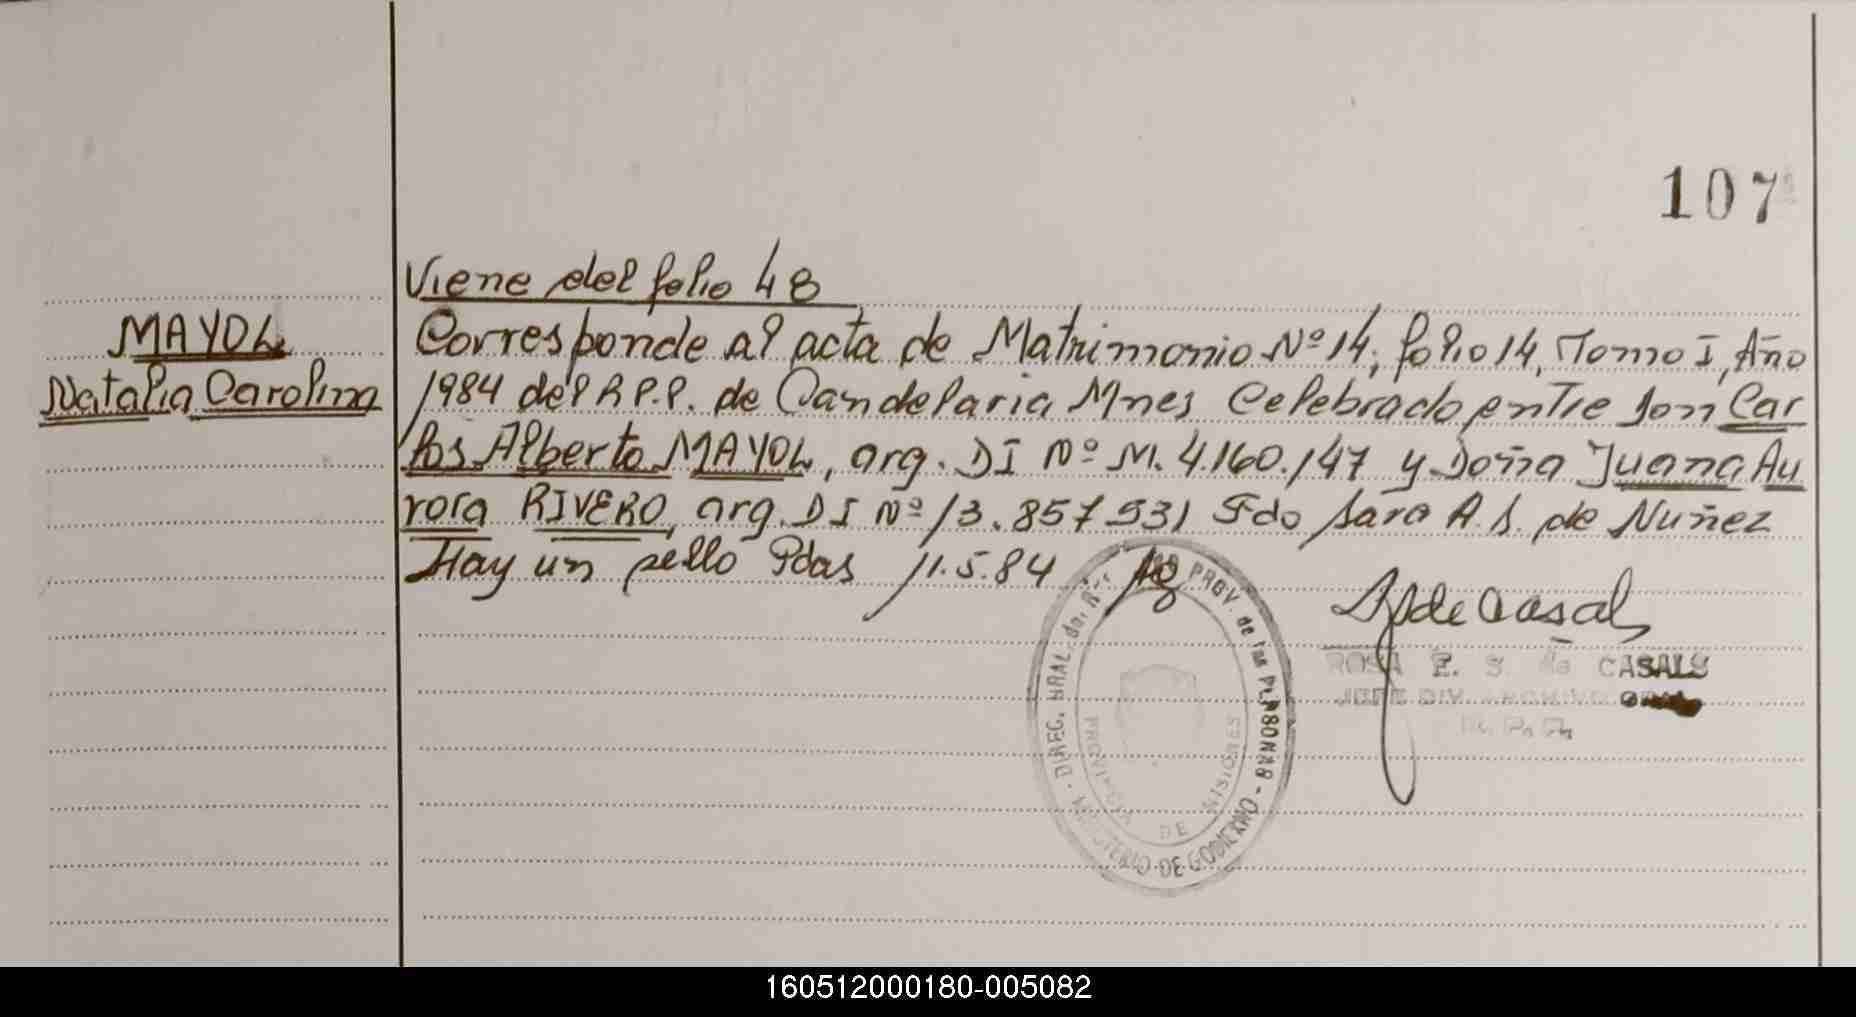 107
Viene del folio 48
MAYOL
Natalia Carolina
Corresponde al acta de Matrimonio Nº 14, folio 14, Tomo I, Año
1984 del R.P.P. de Candelaria Mnes Celebrado entre don Car
los Alberto MAYOL, arg. DI Nº M. 4.160.147 y Doña Juana Au
rora RIVERO, arg. DI Nº 13.857.531 Fdo Sara A. S. de Nuñez
Hay un sello Pdas 11.5.84
DIREC. GRAL. del PROV. de las PERSONAS - MINISTERIO DE GOBIERNO
PROVINCIA DE MISIONES
de Casals
ROSA E. S. de CASALS
JEFE DIV. ARCHIVO GRAL
R. P. P.
160512000180-005082